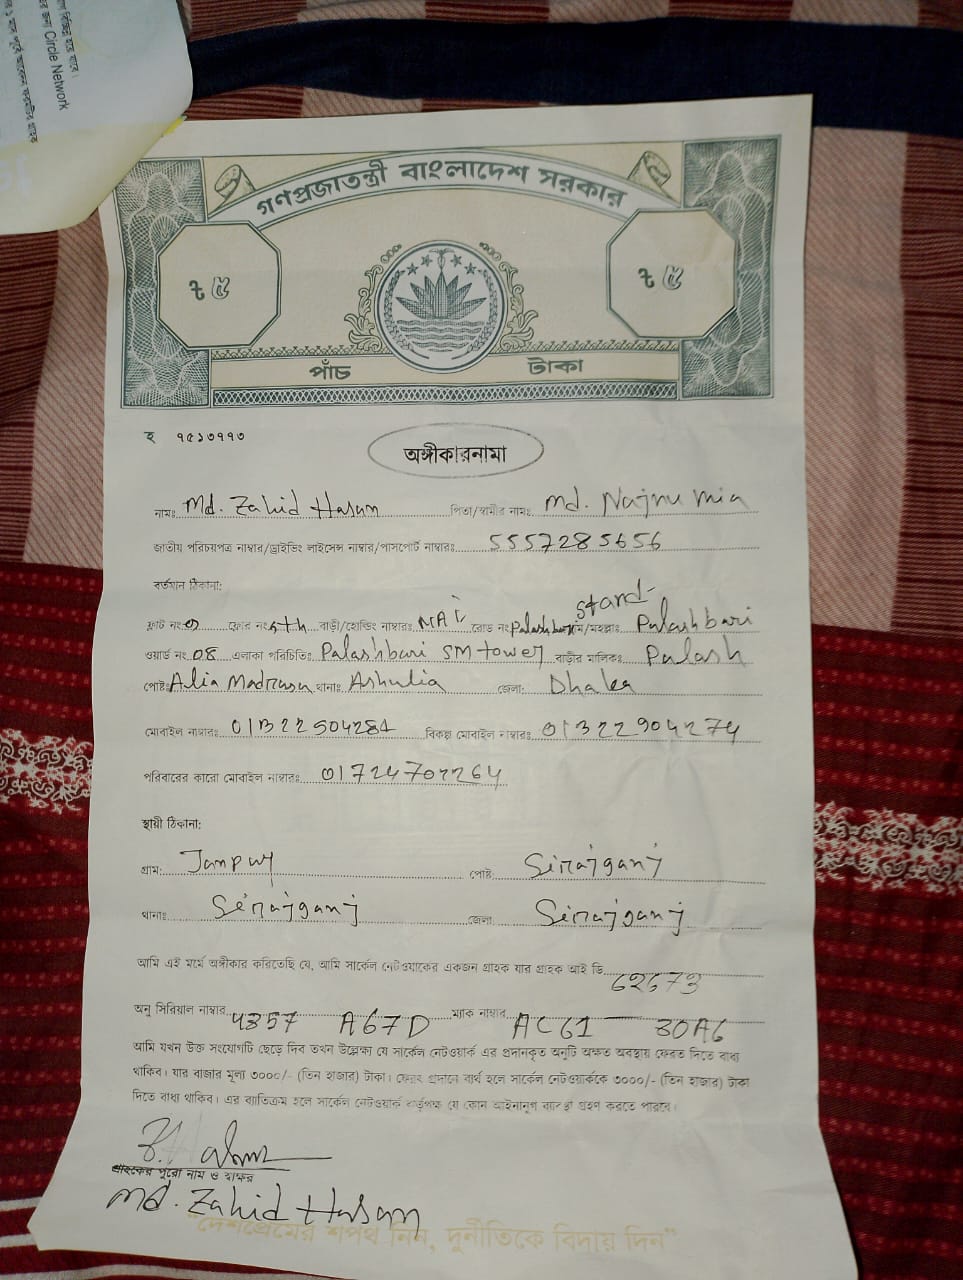 বিচ্ছিন্ন হয়ে যাবে।
জন্য Circle Network
গণপ্রজাতন্ত্রী বাংলাদেশ সরকার
৳ ৫
৳ ৫
পাঁচ টাকা
হ ৭৫১৩৭৭৩
অঙ্গীকারনামা
নামঃ Md. Zahid Hasan পিতা/স্বামীর নামঃ Md. Najmu mia
জাতীয় পরিচয়পত্র নাম্বার/ড্রাইভিং লাইসেন্স নাম্বার/পাসপোর্ট নাম্বারঃ 5557285656
বর্তমান ঠিকানা:
stand-
ফ্লাট নং ফ্লোর নং 5th বাড়ী/হোল্ডিং নাম্বারঃ রোড নং Palashbari গ্রাম/মহল্লাঃ Palashbari
ওয়ার্ড নং 08 এলাকা পরিচিতিঃ Palashbari SM tower বাড়ীর মালিকঃ Palash
পোষ্টঃ Alia Madrasa থানাঃ Ashulia জেলা: Dhaka
মোবাইল নাম্বারঃ 01322904281 বিকল্প মোবাইল নাম্বারঃ 01322904274
পরিবারের কারো মোবাইল নাম্বারঃ 01724707264
স্থায়ী ঠিকানা:
গ্রাম: পোষ্ট Sirajganj
থানাঃ Sirajganj জেলা Sirajganj
আমি এই মর্মে অঙ্গীকার করিতেছি যে, আমি সার্কেল নেটওয়াকের একজন গ্রাহক যার গ্রাহক আই ডি 62673
অনু সিরিয়াল নাম্বার 4357 A67D ম্যাক নাম্বার AC61 — 30A6
আমি যখন উক্ত সংযোগটি ছেড়ে দিব তখন উল্লেক্ষ্য যে সার্কেল নেটওয়ার্ক এর প্রদানকৃত অনুটি অক্ষত অবস্থায় ফেরত দিতে বাধ্য
থাকিব। যার বাজার মূল্য ৩০০০/- (তিন হাজার) টাকা। ফেরৎ প্রদানে ব্যর্থ হলে সার্কেল নেটওয়ার্ককে ৩০০০/- (তিন হাজার) টাকা
দিতে বাধ্য থাকিব। এর ব্যাতিক্রম হলে সার্কেল নেটওয়ার্ক কর্তৃপক্ষ যে কোন আইনানুগ ব্যবস্থা গ্রহণ করতে পারবে।
গ্রাহকের পুরো নাম ও স্বাক্ষর
Md. Zahid Hasan
"দেশপ্রেমের শপথ নিন, দুর্নীতিকে বিদায় দিন"